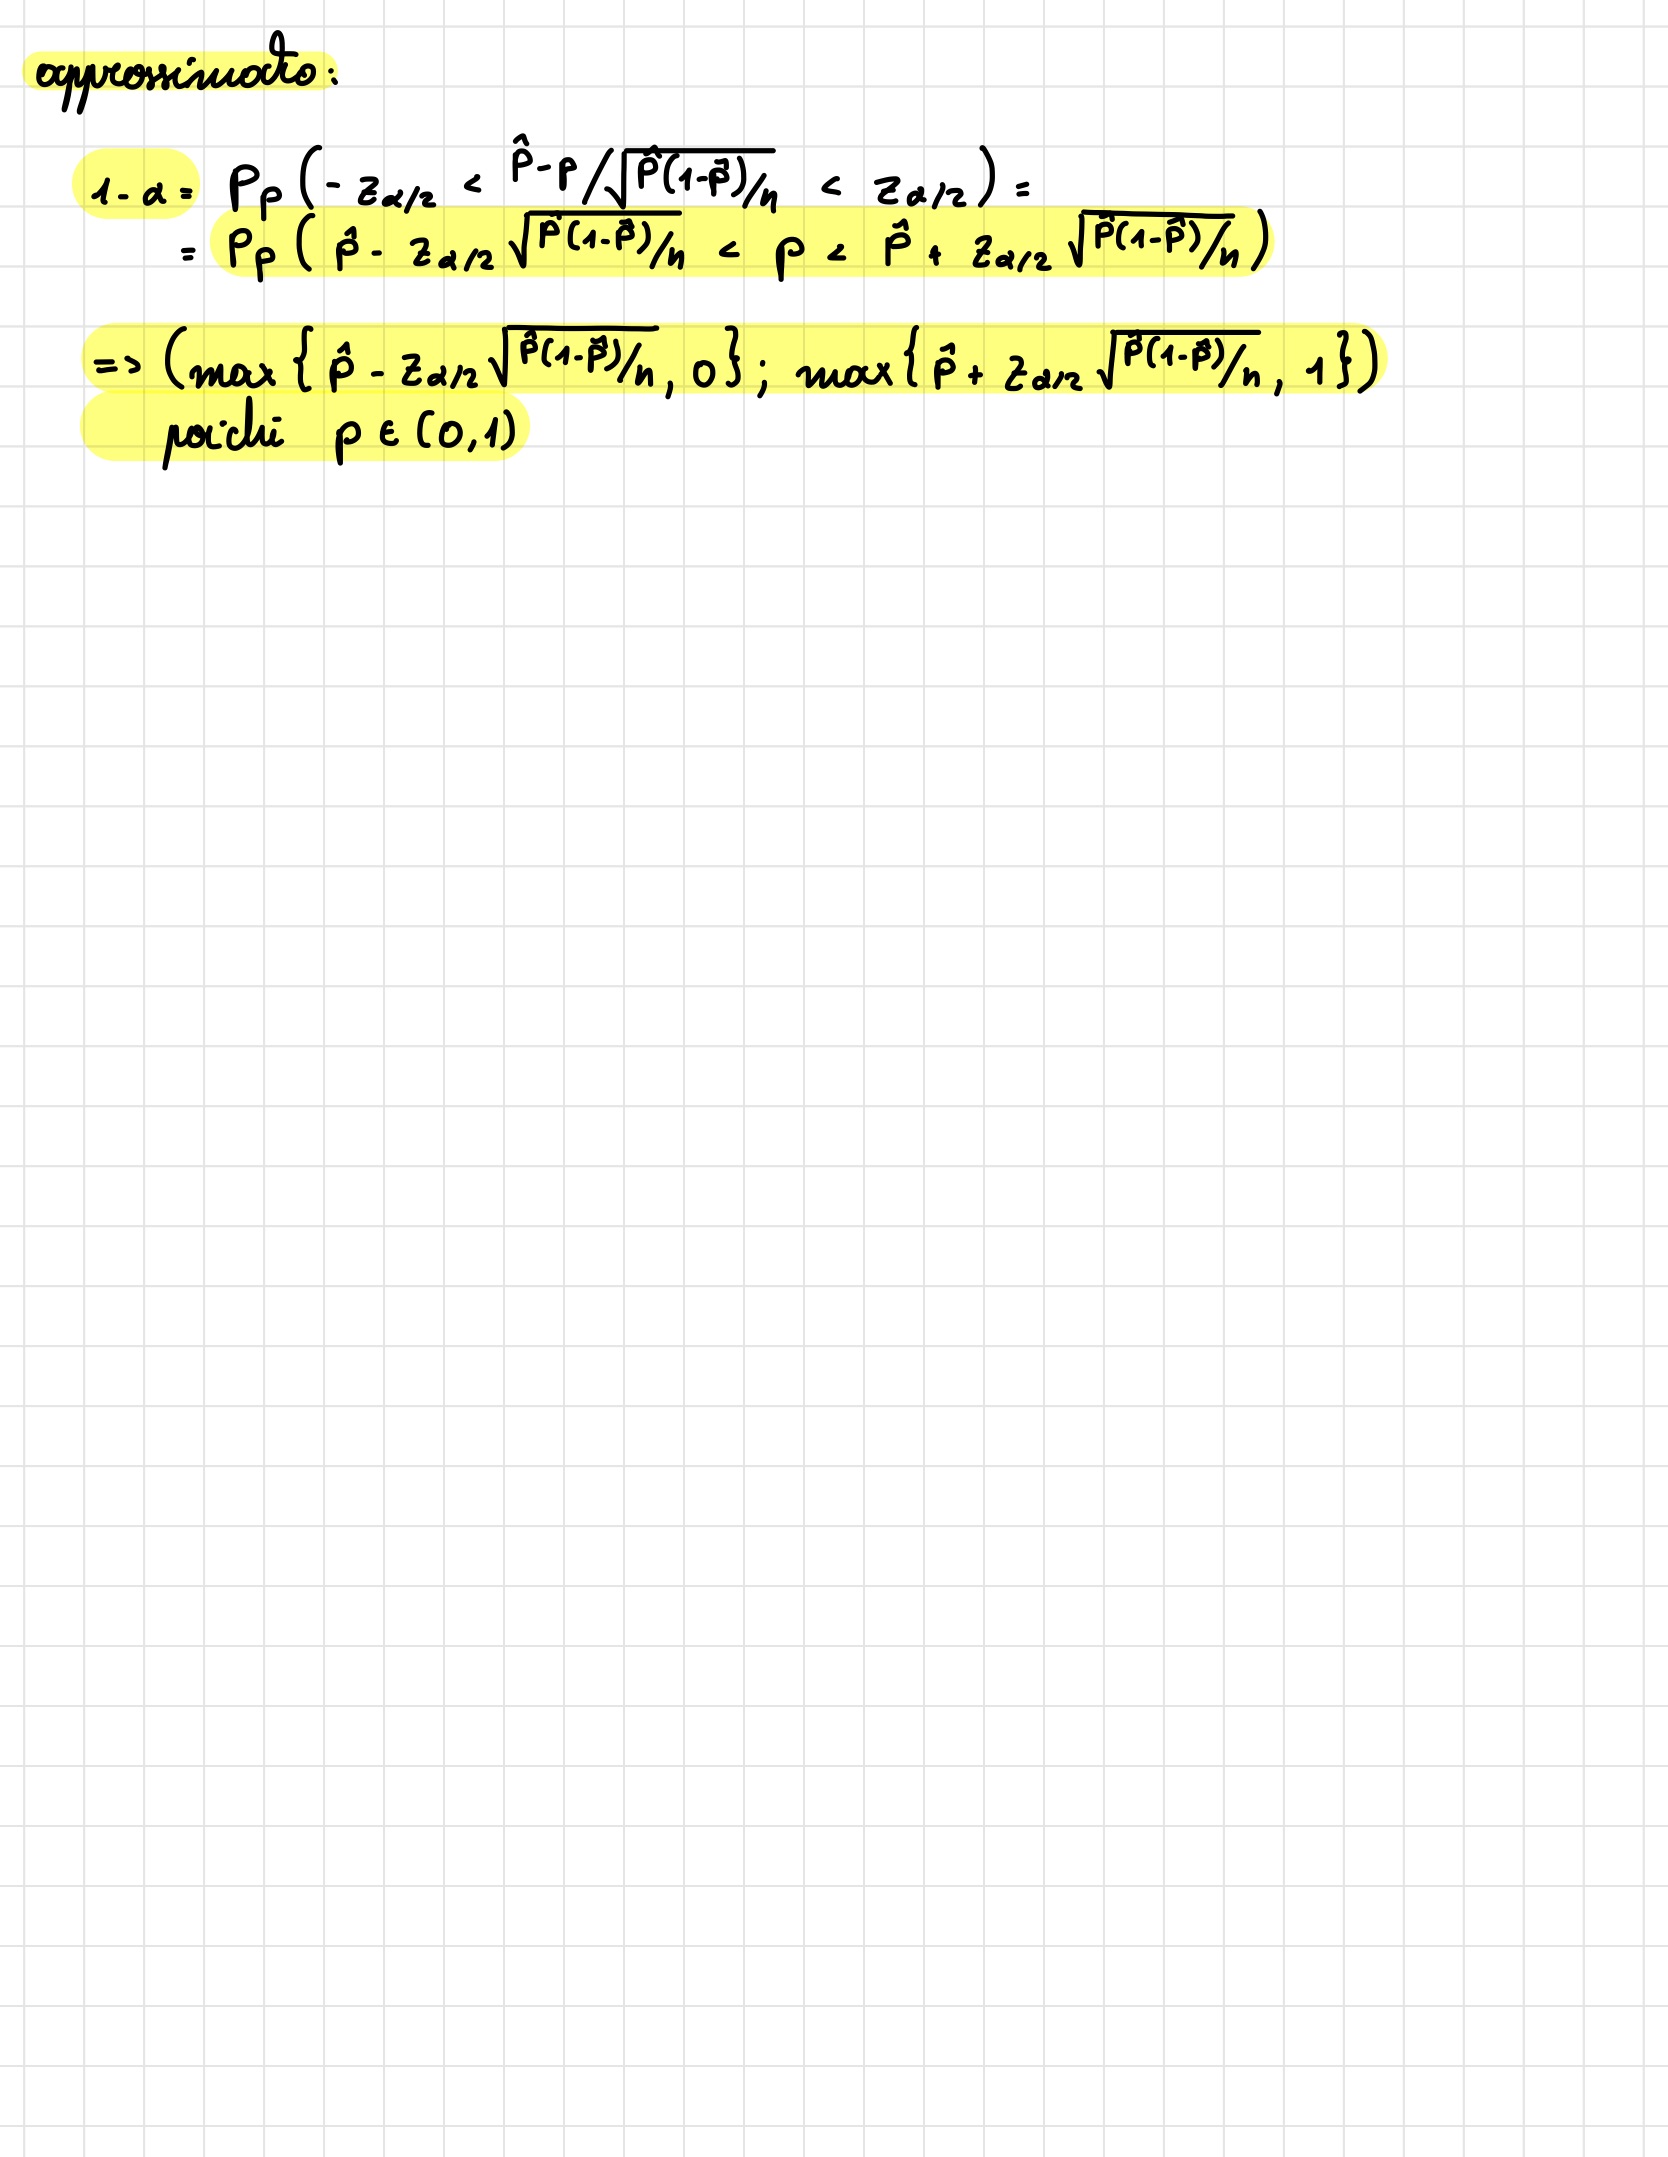 approssimato:
1-α = Pp(-z_{α/2} < p̂-p/√(p̂(1-p̂)/n) < z_{α/2}) =
= Pp(p̂ - z_{α/2} √(p̂(1-p̂)/n) < p < p̂ + z_{α/2} √(p̂(1-p̂)/n))
=> (max{p̂ - z_{α/2} √(p̂(1-p̂)/n), 0}; max{p̂ + z_{α/2} √(p̂(1-p̂)/n), 1})
poichi p ∈ (0,1)